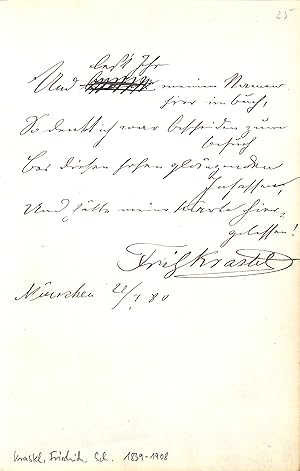 25
lest Ihr
Und meinen Namen
hier im buch,
So denkt ich war bescheiden zum
besuch
Bei diesen hohen glänzenden
Insassen,
Und hätte meine Karte hier
gelassen!
Fritz Krastel
München 22/7 80
Krastel, Friedrich, Sch. 1839-1908